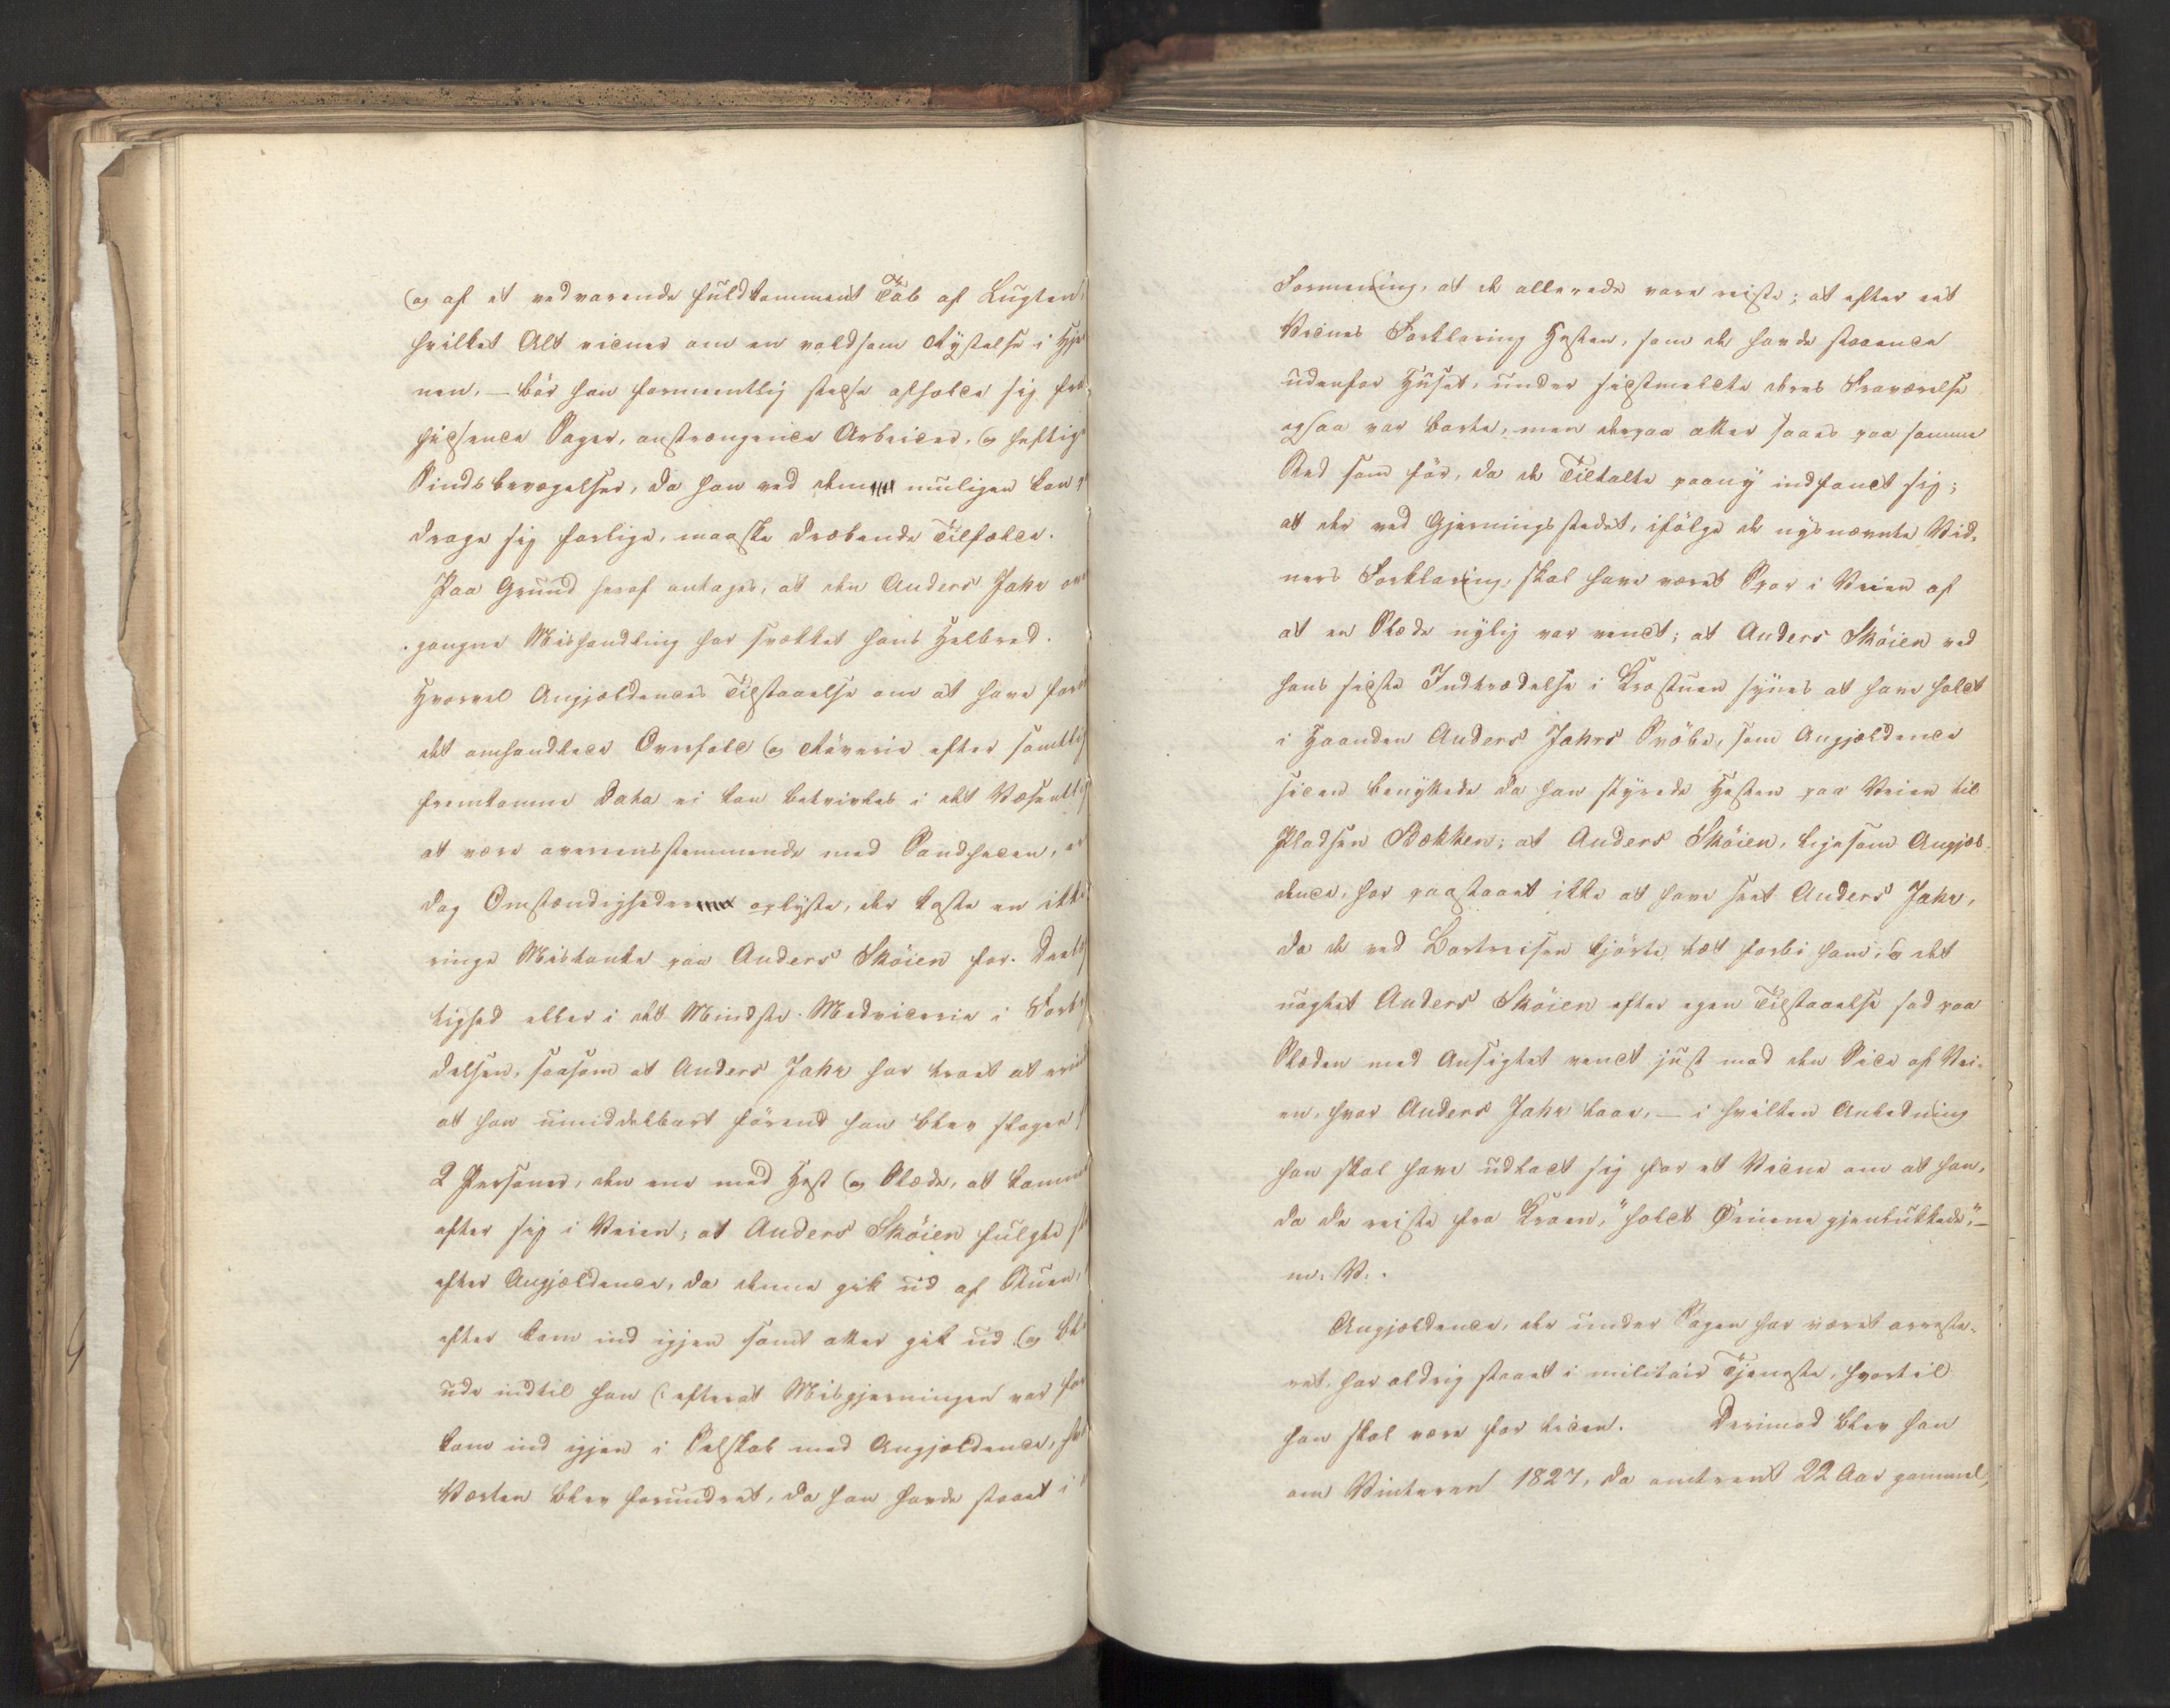 og af et vedvarende fuldkomment Tab af Lugten,
hvilket Alt vidner om en voldsom Rystelse i Hjer
nen, — bör han formeentlig stedse afholde sig fra
hidsende Sager, anstrængende Arbeider, og heftige
Sindsbevægelser, da han ved dem muligen kan
drage sig farlige, maaske dræbende Tilfælde.
Paa Grund heraf antages, at den Anders Jahr over
gangne Mishandling har svækket hans Helbred.
Hvorvel Angjældendes Tilstaaelse om at have for
det omhandlede Overfald og Röverie efter samtlige
fremkomne Data ei kan betvivles i det Væsentlige
at være overeensstemmende med Sandheden, er
dog Omstændigheder oplyste, der kaste en ikke
ringe Mistanke paa Anders Sköien for Deelag
tighed eller i det Mindste Medviderie i Forbry
delsen, saasom at Anders Jahr har troet at
at han umiddelbart förend han blev slagen
2 Personer, den ene med Hest og Slæde, at komme
efter sig i Veien; at Anders Sköien fulgte
efter Angjældende, da denne gik ud af Stuen,
efter kom ind igjen samt atter gik ud og blev
ude indtil han (: efterat Misgjerningen var
kom ind igjen i Selskab med Angjældende,
Værten blev forundret, da han havde staaet i
Formening, at de allerede vare reiste; at efter eet
Vidnes Forklaring Hesten, som de havde staaende
udenfor Huset, under sidstmeldte deres Fraværelse
ogsaa var borte, men derpaa atter saaes paa samme
Sted som för, da de Tiltalte paany indfandt sig;
at der ved Gjerningsstedet, ifölge de nysnævnte Vid-
ners Forklaring, skal have været Spor i Veien af
at en Slæde nylig var vendt; at Anders Sköien ved
hans sidste Indtrædelse i Krostuen synes at have holdt
i Haanden Anders Jahrs Svöbe, som Angjældende
siden benyttede da han styrede Hesten paa Veien til
Pladsen Bækken; at Anders Sköien, ligesom Angjæl-
dende, har paastaaet ikke at have seet Anders Jahr,
da de ved Bortreisen kjörte tæt forbi ham, og det
uagtet Anders Sköien efter egen Tilstaaelse sad paa
Slæden med Ansigtet vendt just mod den Side af Vei-
en, hvor Anders Jahr laae, — i hvilken Anledning
han skal have udladt sig for et Vidne om at han,
da de reiste fra Kroen, "holdt Öinene gjenlukkede," —
m: V: .
Angjældende, der under Sagen har været arreste-
ret, har aldrig staaet i militair Tjeneste, hvortil
han skal være for liden. Derimod blev han
om Vinteren 1827, da omtrent 22 Aar gammel,